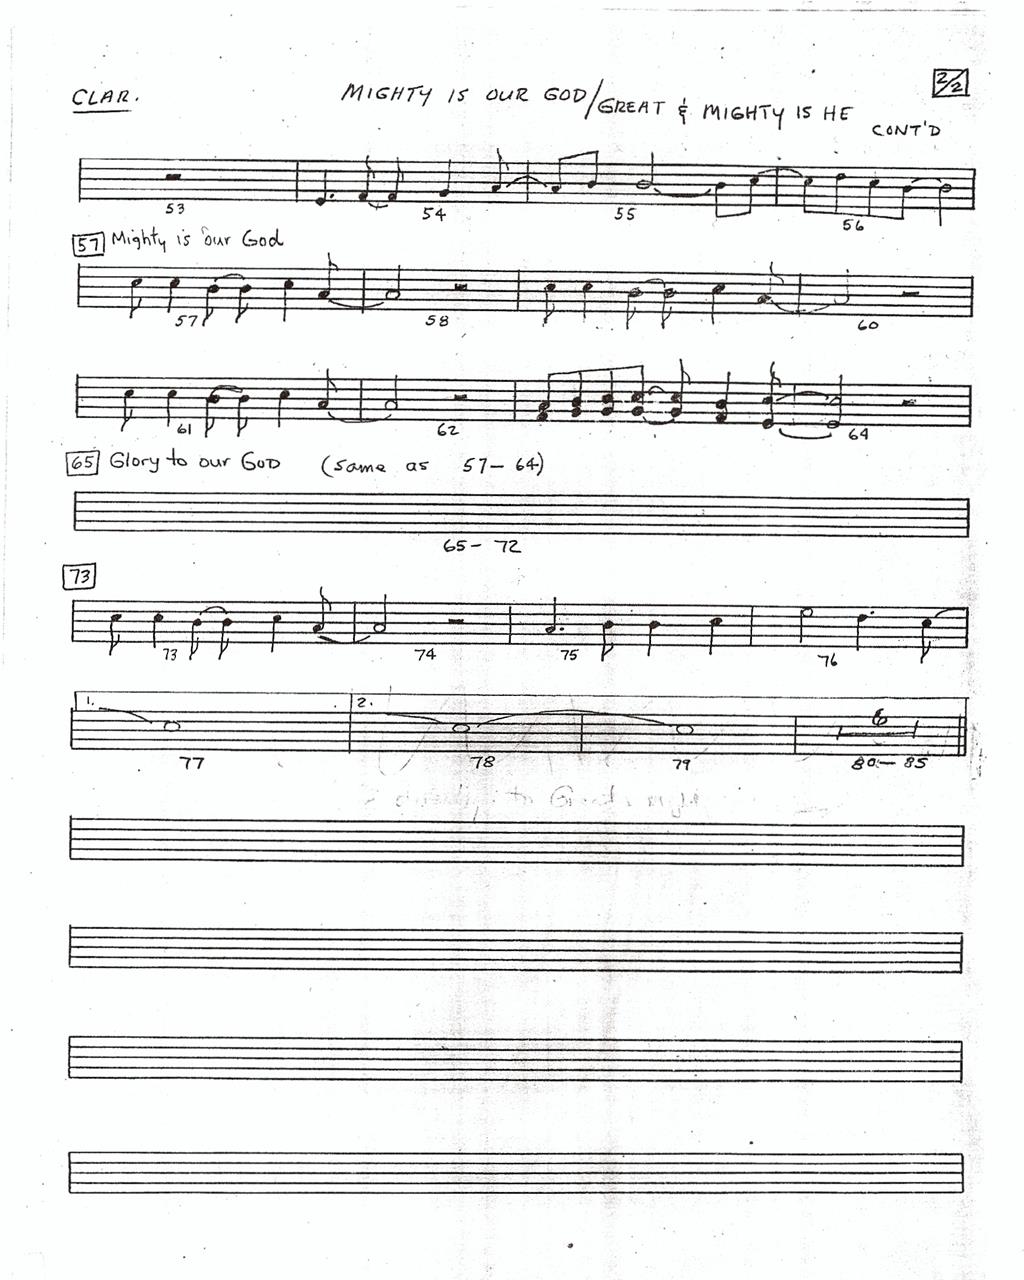 CLAR.
MIGHTY IS OUR GOD/GREAT & MIGHTY IS HE
2/2
CONT'D
53 54 55 56
57 Mighty is our God
57 58 60
61 62 64
65 Glory to our GOD (same as 57-64)
65-72
73
73 74 75 76
1. 2.
6
77 78 79 80-85